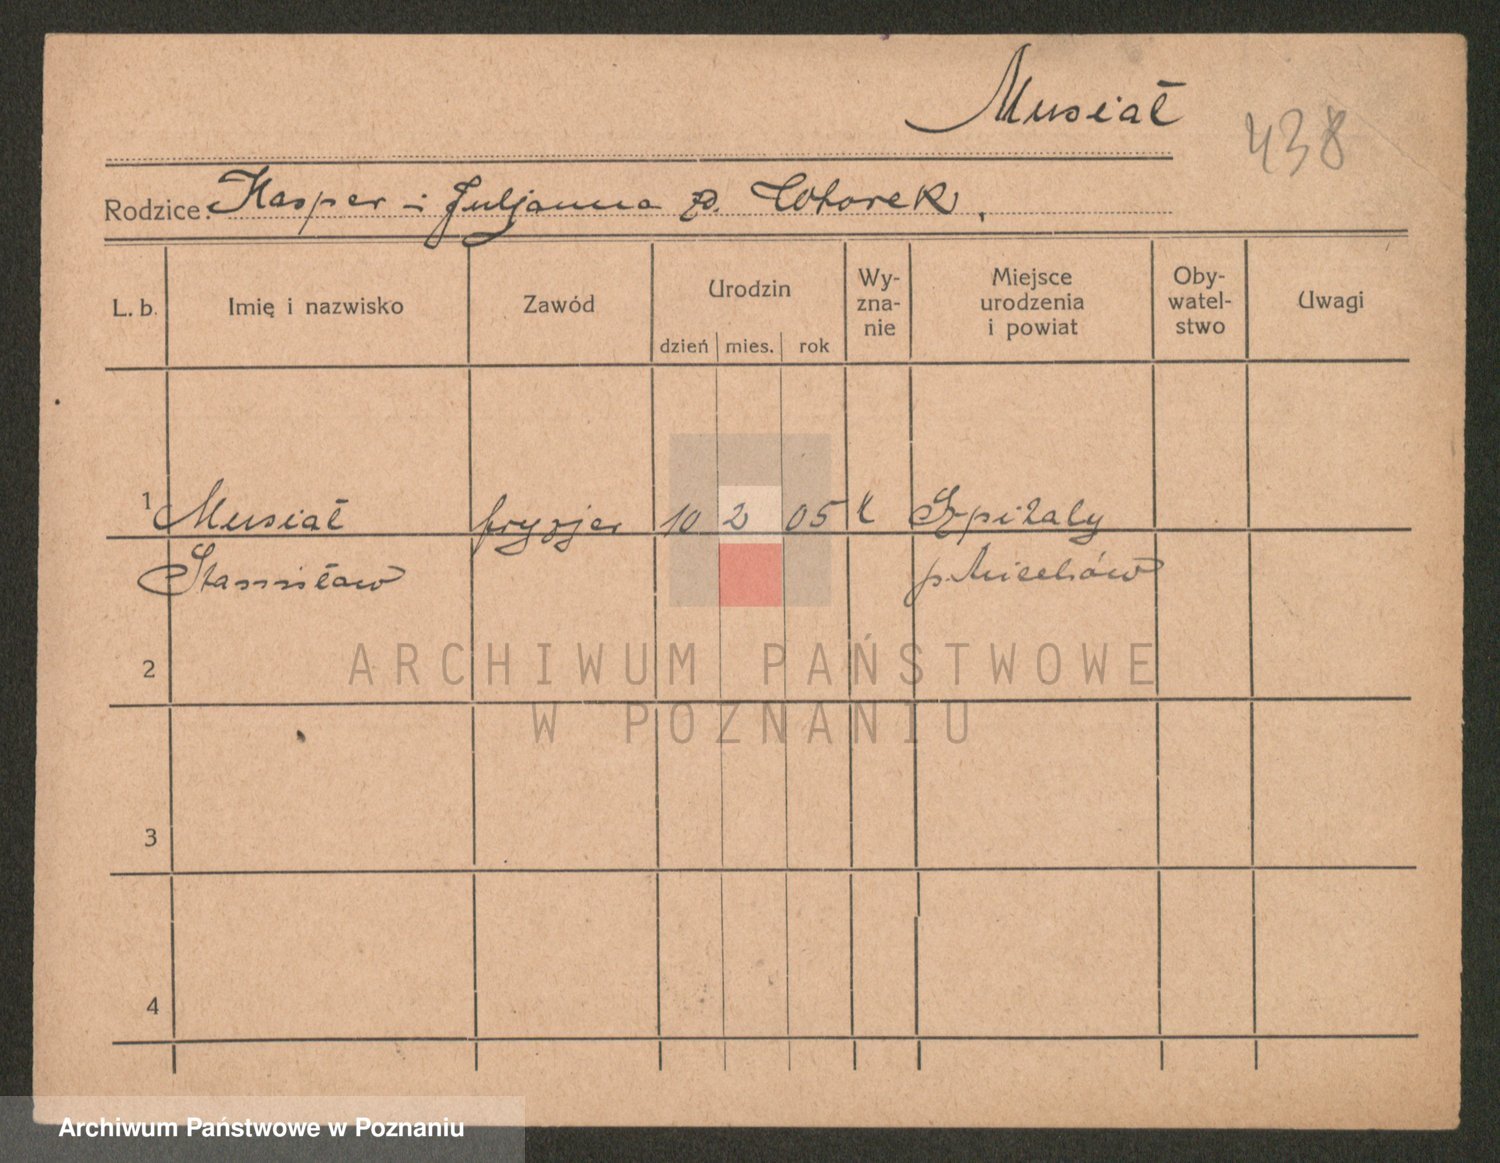 Musiał
438
Rodzice: Kasper i Juljanna z d. Wtorek.
L. b.
Imię i nazwisko
Zawód
Urodzin
dzień mies. rok
Wy-
zna-
nie
Miejsce
urodzenia
i powiat
Oby-
watel-
stwo
Uwagi
1 Musiał fryzjer 10 2 05 k Szpitaly
Stanisław p. Miechów
2
ARCHIWUM PAŃSTWOWE
W POZNANIU
3
4
Archiwum Państwowe w Poznaniu